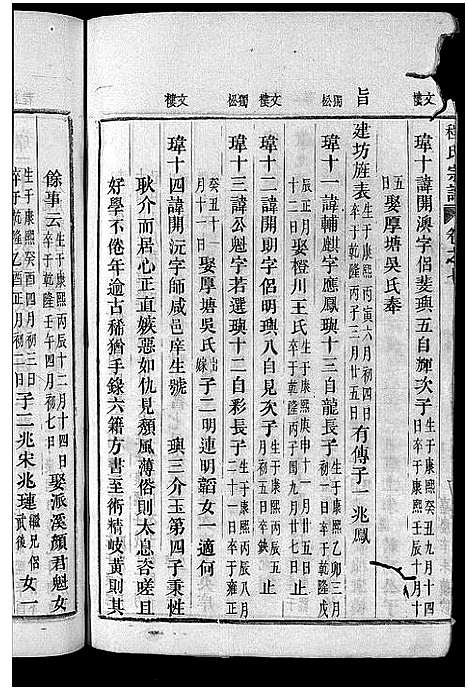 程氏宗譜 卷之七
文樓
瑋十諱開澳字侶斐璵五自輝次子生于康熙癸丑九月十四日卒于康熙壬辰十月十五日娶厚塘吳氏奉
旨
建坊旌表生于康熙丙寅六月初四日卒于乾隆丙子三月廿五日有傳子一兆鳳
獨松
瑋十一諱輔麒字應鳳璵十三自龍長子生于康熙乙卯三月初一日卒于乾隆戊辰正月十二日娶橙川王氏生于康熙庚申十一月廿五日卒于乾隆丙子閏九月廿七日止
文樓
瑋十二諱開朗字侶明璵八自見次子生于康熙丙辰五月初五日卒缺止
獨松
瑋十三諱公魁字若選璵十二自彩長子生于康熙二十一日卒于雍正癸丑十一月十一日娶厚塘吳氏嫁出子二明連明韜女一適何
文樓
瑋十四諱開沅字師咸邑庠生號 璵三介玉第四子秉性
耿介而居心正直嫉惡如仇見頹風薄俗則太息咨嗟且
好學不倦年逾古稀猶手錄六籍方書至術精岐黃則其
餘事云生于康熙丙辰十二月十四日卒于乾隆壬午四月初七日娶派溪顏君魁女
生于康熙癸酉四月初三日卒于乾隆乙酉正月初二日子二兆宋兆璉繼兄侶武後女一